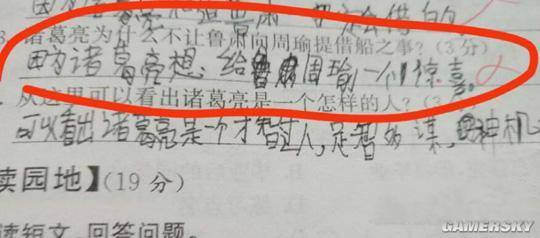 诸葛亮为什么不让鲁肃向周瑜提借船之事？(3分)
因为诸葛亮想给周瑜一个惊喜。
从这里可以看出诸葛亮是一个怎样的人？(3
可以看出诸葛亮是一个才智过人，足智多谋，神机
读园地】(19分)
读短文，回答问题。
GAMERSKY